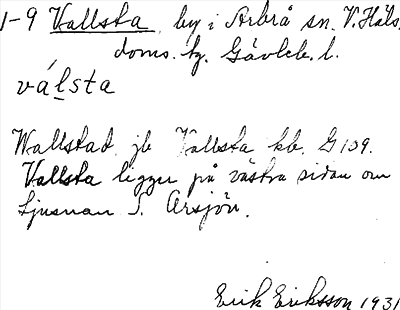 1-9 Vallsta by i Arbrå sn. V. Häls.
doms. hg. Gävleb. l.
válsta
Wallstad jb Vallsta kb. G139.
Vallsta ligger på västra sidan om
Ljusnan l. Orsjön.
Erik Eriksson 1931